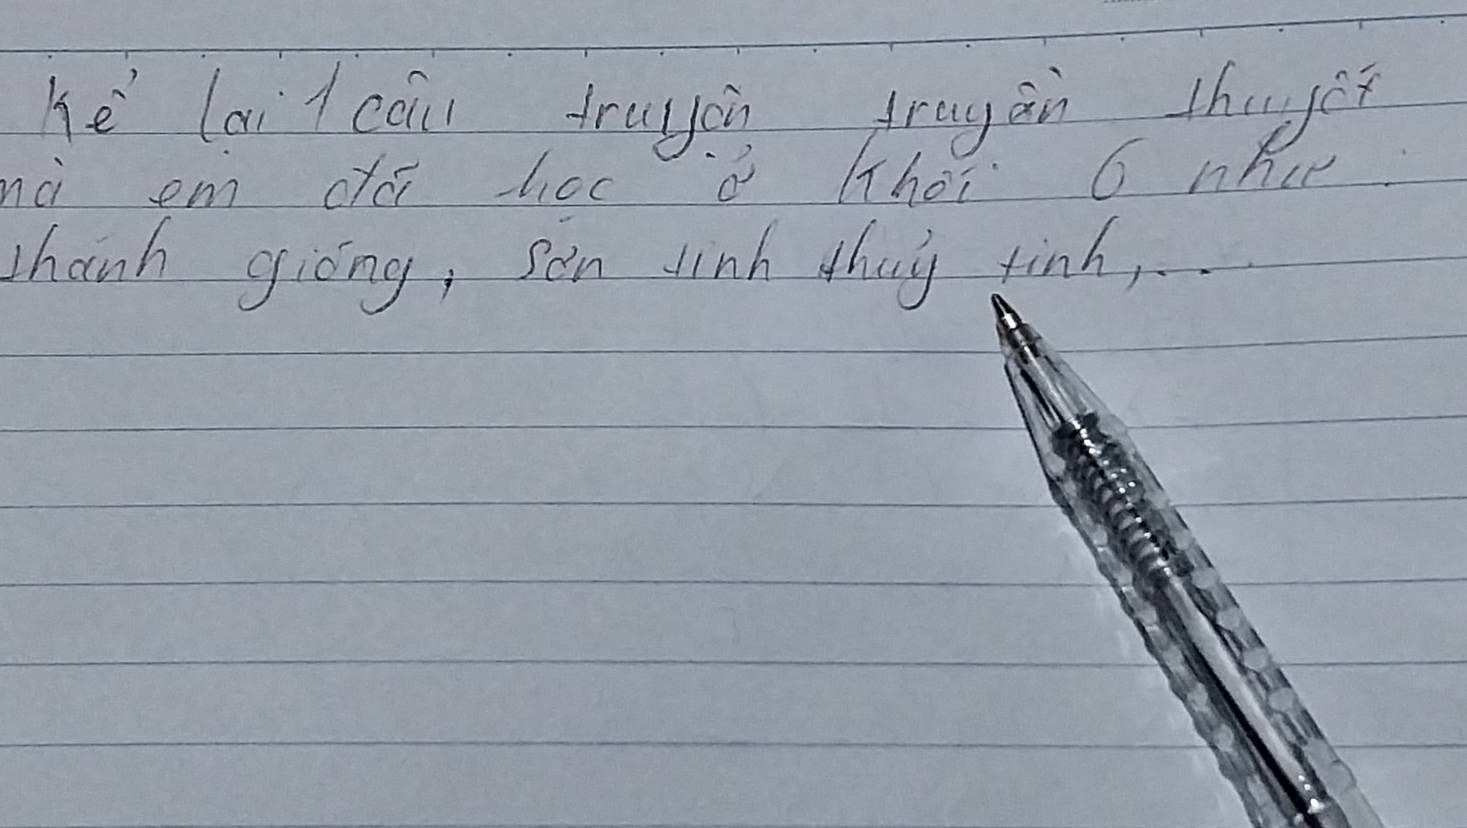 Kể lại 1 câu truyện truyền thuyết
mà em đã học ở khối 6 như:
thánh gióng, sơn tinh thuỷ tinh,...